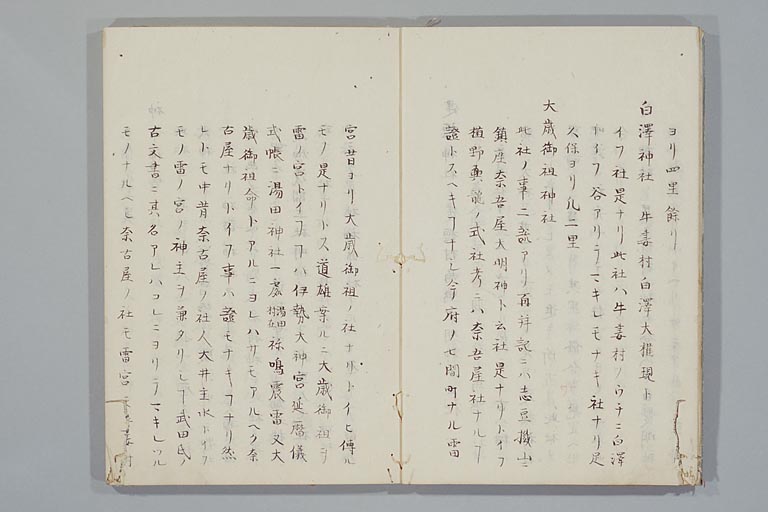 ヨリ四里餘リ
白澤神社 牛妻村白澤大權現ト
イフ社是ナリ此社ハ牛妻村ノウチニ白澤
トイフ谷アリテマキレモナキ社ナリ足
久保ヨリ凡一里
大歳御祖神社
此社ノ事二説アリ再拜記ニハ志豆機山ニ
鎮座奈吾屋大明神ト云社是ナリトイフ
横野勇 ノ式社考ニハ奈吾屋社ナルヿ
證トスヘキヿナシ今府ノ七間町ナル雷
宮昔ヨリ大歳御祖ノ社ナリトイヒ傳ル
モノ是ナリトス道雄案ルニ大歳御祖ヲ
雷ノ宮トイフヿハ伊勢大神宮延暦儀
式帳ニ湯田神社一處 湯田村在 稱鳴震雷又大
歳御祖命トアルニヨレハサモアルヘク奈
古屋ナリトイフ事ハ證モナキヿナリ然
レトモ中昔奈古屋ノ社人大井主水トイフ
モノ雷ノ宮ノ神主ヲ兼タリしヿ武田氏ノ
古文書ニ其名アレハコレニヨリテマキレツル
モノナルヘシ奈古屋ノ社モ雷宮